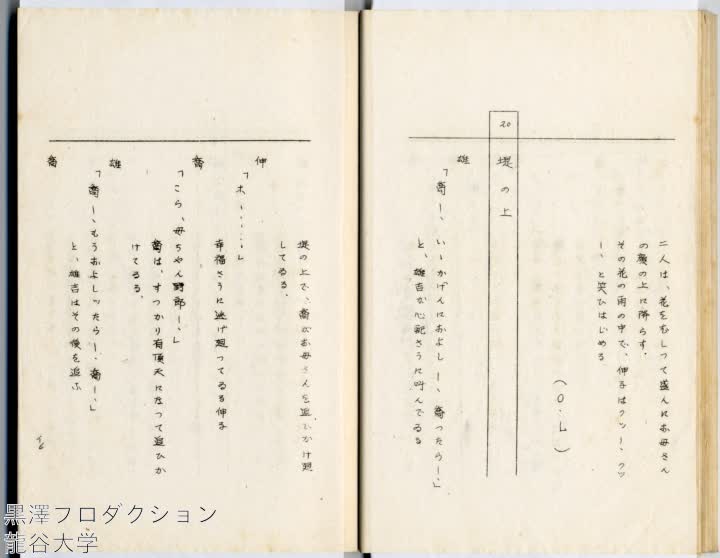 二人は、花をむしつて盛んにお母さん
の顔の上に降らす。
その花の雨の中で、伸子はクツー、クツ
ー、と笑ひはじめる
(O.L)
20
堤の上
雄
「喬ー、いゝかげんにおよしー、喬つたらー。」
と、雄吉が心配さうに呼んでるる
堤の上で、喬がお母さんを追ひかけ廻
してるる。
伸
「ホ、、、、、。」
幸福さうに逃げ廻つてるる伸子
喬
「こら、母ちやん野郎ー。」
喬は、すつかり有頂天になつて追ひか
けてるる。
雄
「喬ー、もうおよしツたらー、喬ー。」
と、雄吉はその後を追ふ
喬
黒澤プロダクション
龍谷大学